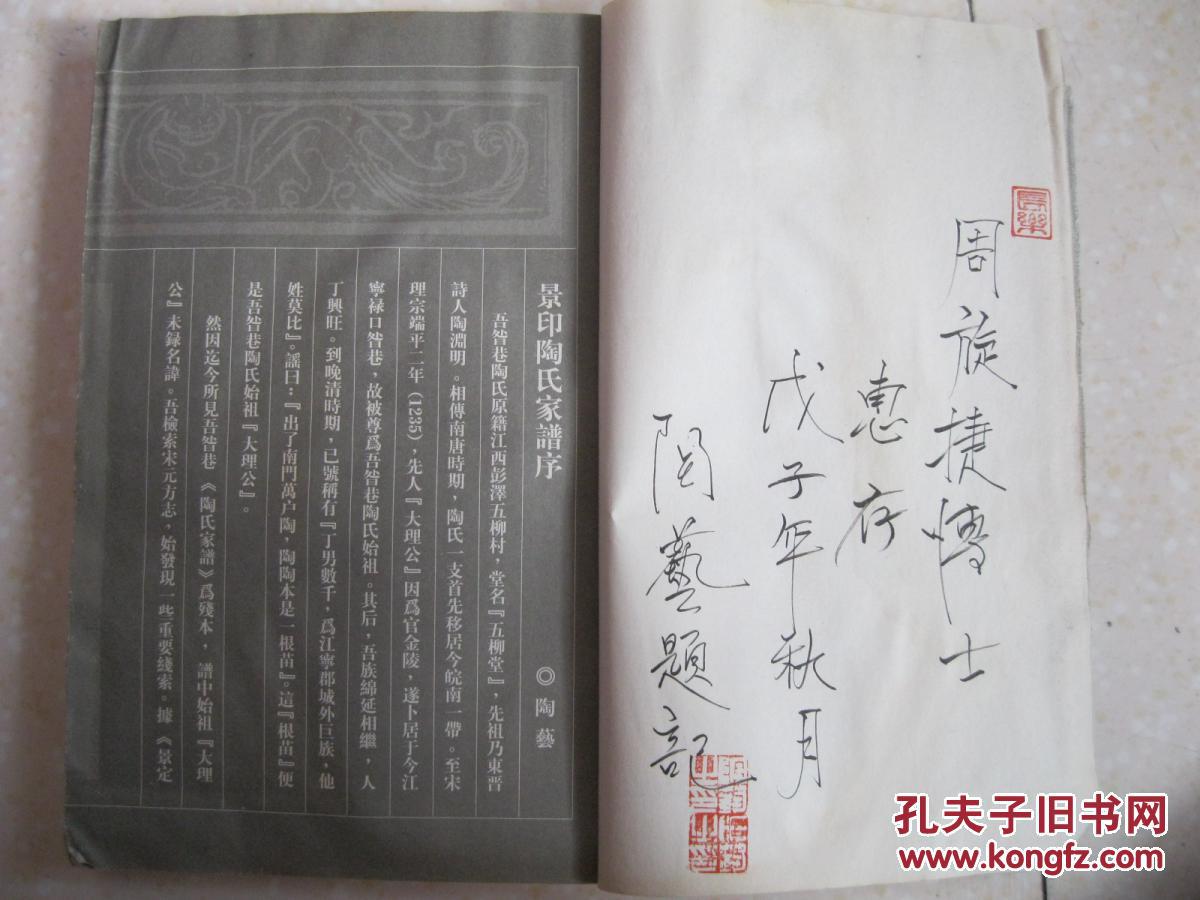 周旋捷博士
惠存
戊子年秋月
陶藝題記
長樂
景印陶氏家譜序
◎陶藝
吾昝巷陶氏原籍江西彭澤五柳村，堂名『五柳堂』，先祖乃東晋
詩人陶淵明。相傳南唐時期，陶氏一支首先移居今皖南一帶。至宋
理宗端平二年(1235)，先人『大理公』因爲官金陵，遂卜居于今江
寧禄口昝巷，故被尊爲吾昝巷陶氏始祖。其后，吾族綿延相繼，人
丁興旺。到晚清時期，已號稱有『丁男數千，爲江寧郡城外巨族，他
姓莫比』。謡曰：『出了南門萬户陶，陶陶本是一根苗』。這『根苗』便
是吾昝巷陶氏始祖『大理公』。
然因迄今所見吾昝巷《陶氏家譜》爲殘本，譜中始祖『大理
公』未録名諱。吾檢索宋元方志，始發現一些重要綫索。據《景定
孔夫子旧书网
www.kongfz.com